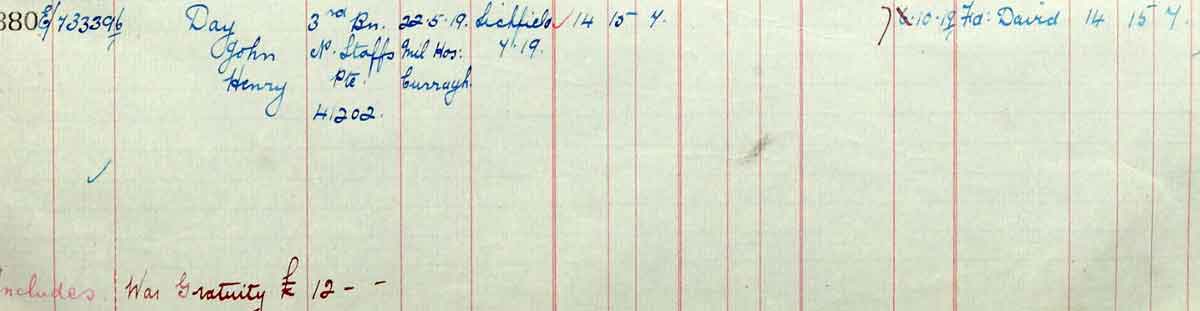 880 E/733396/1 Day 3rd Bn. 22.5.19. Lichfield 14 15 7. 10.19 Fa: David 14 15 7.
John N. Staffs Mil Hos: 7.19.
Henry Pte. Curragh.
41202.
Includes War Gratuity £ 12 - -